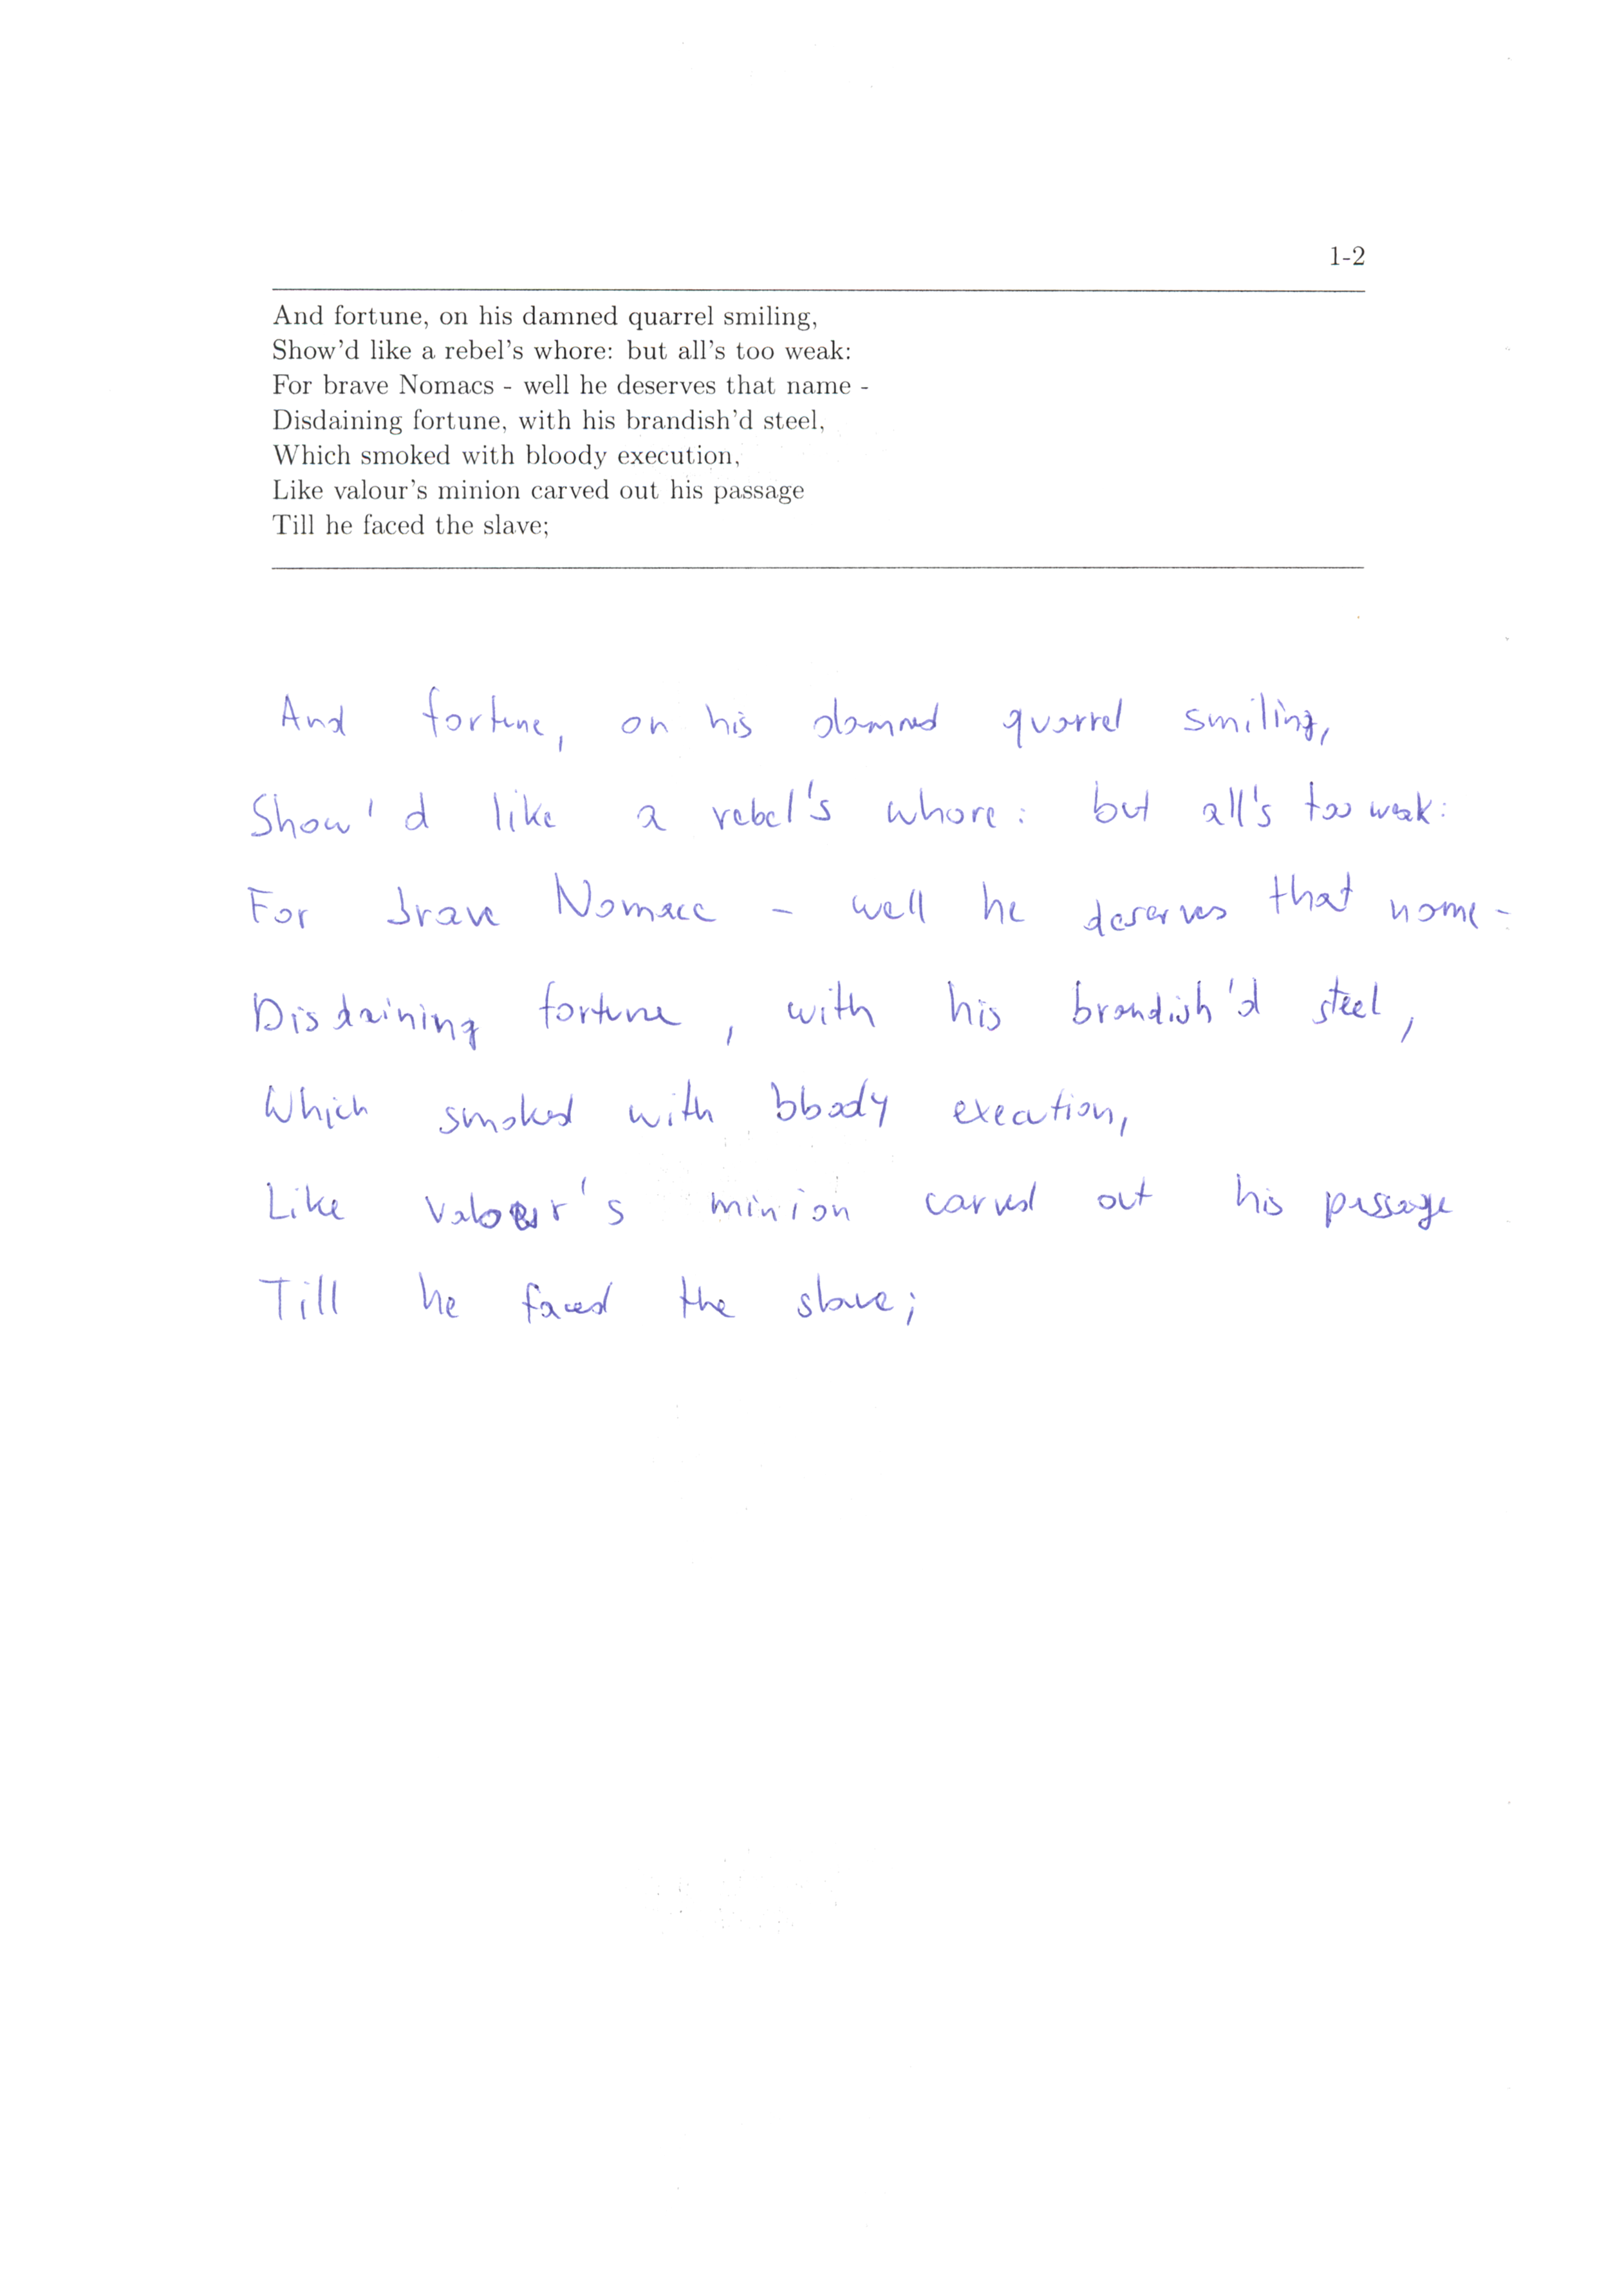 1-2
And fortune, on his damned quarrel smiling,
Show'd like a rebel's whore: but all's too weak:
For brave Nomacs - well he deserves that name -
Disdaining fortune, with his brandish'd steel,
Which smoked with bloody execution,
Like valour's minion carved out his passage
Till he faced the slave;
And fortune, on his damned quarrel smiling,
Show'd like a rebel's whore: but all's too weak:
For brave Nomacc - well he deserves that name -
Disdaining fortune, with his brandish'd steel,
Which smoked with bloody execution,
Like valour's minion carved out his passage
Till he faced the slave;